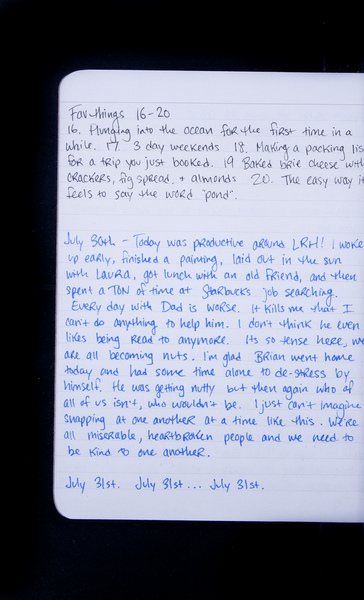 Fav things 16-20
16. Plunging into the ocean for the first time in a
while. 17. 3 day weekends 18. Making a packing lis
for a trip you just booked. 19 Baked brie cheese with
crackers, fig spread, + almonds 20. The easy way it
feels to say the word "pond".
July 30th - Today was productive around LRH! I woke
up early, finished a painting, laid out in the sun
with Laura, got lunch with an old friend, and then
spent a TON of time at Starbucks job searching.
Every day with Dad is worse. It kills me that I
can't do anything to help him. I don't think he even
likes being read to anymore. Its so tense here, we
are all becoming nuts. I'm glad Brian went home
today and had some time alone to de-stress by
himself. He was getting nutty but then again who of
all of us isn't, who wouldn't be. I just can't imagine
snapping at one another at a time like this. We're
all miserable, heartbroken people and we need to
be kind to one another.
July 31st. July 31st... July 31st.